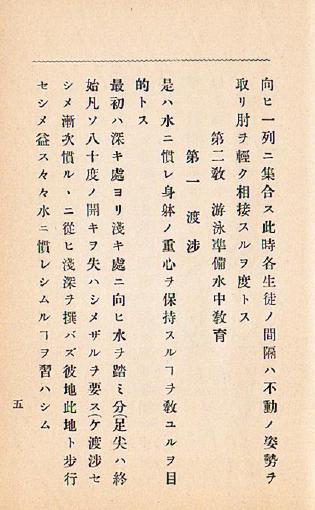 向ヒ一列ニ集合ス此時各生徒ノ間隔ハ不動ノ姿勢ヲ
取リ肘ヲ輕ク相接スルヲ度トス
第二敎 游泳準備水中敎育
第一 渡渉
是ハ水ニ慣レ身躰ノ重心ヲ保持スルヿヲ敎ユルヲ目
的トス
最初ハ深キ處ヨリ淺キ處ニ向ヒ水ヲ踏ミ分(足尖ハ終
始凡ソ八十度ノ開キヲ失ハシメザルヲ要ス(ケ渡渉セ
シメ漸次慣ルヽニ從ヒ淺深ヲ撰バズ彼地此地ト步行
セシメ益ス々々水ニ慣レシムルヿヲ習ハシム
五